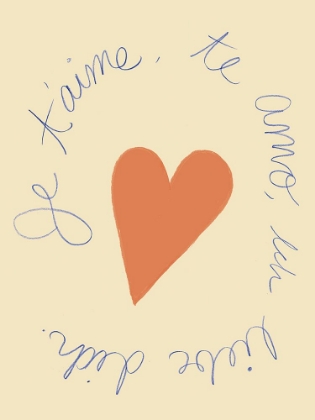 Je t'aime, te amo, ich liebe dich.